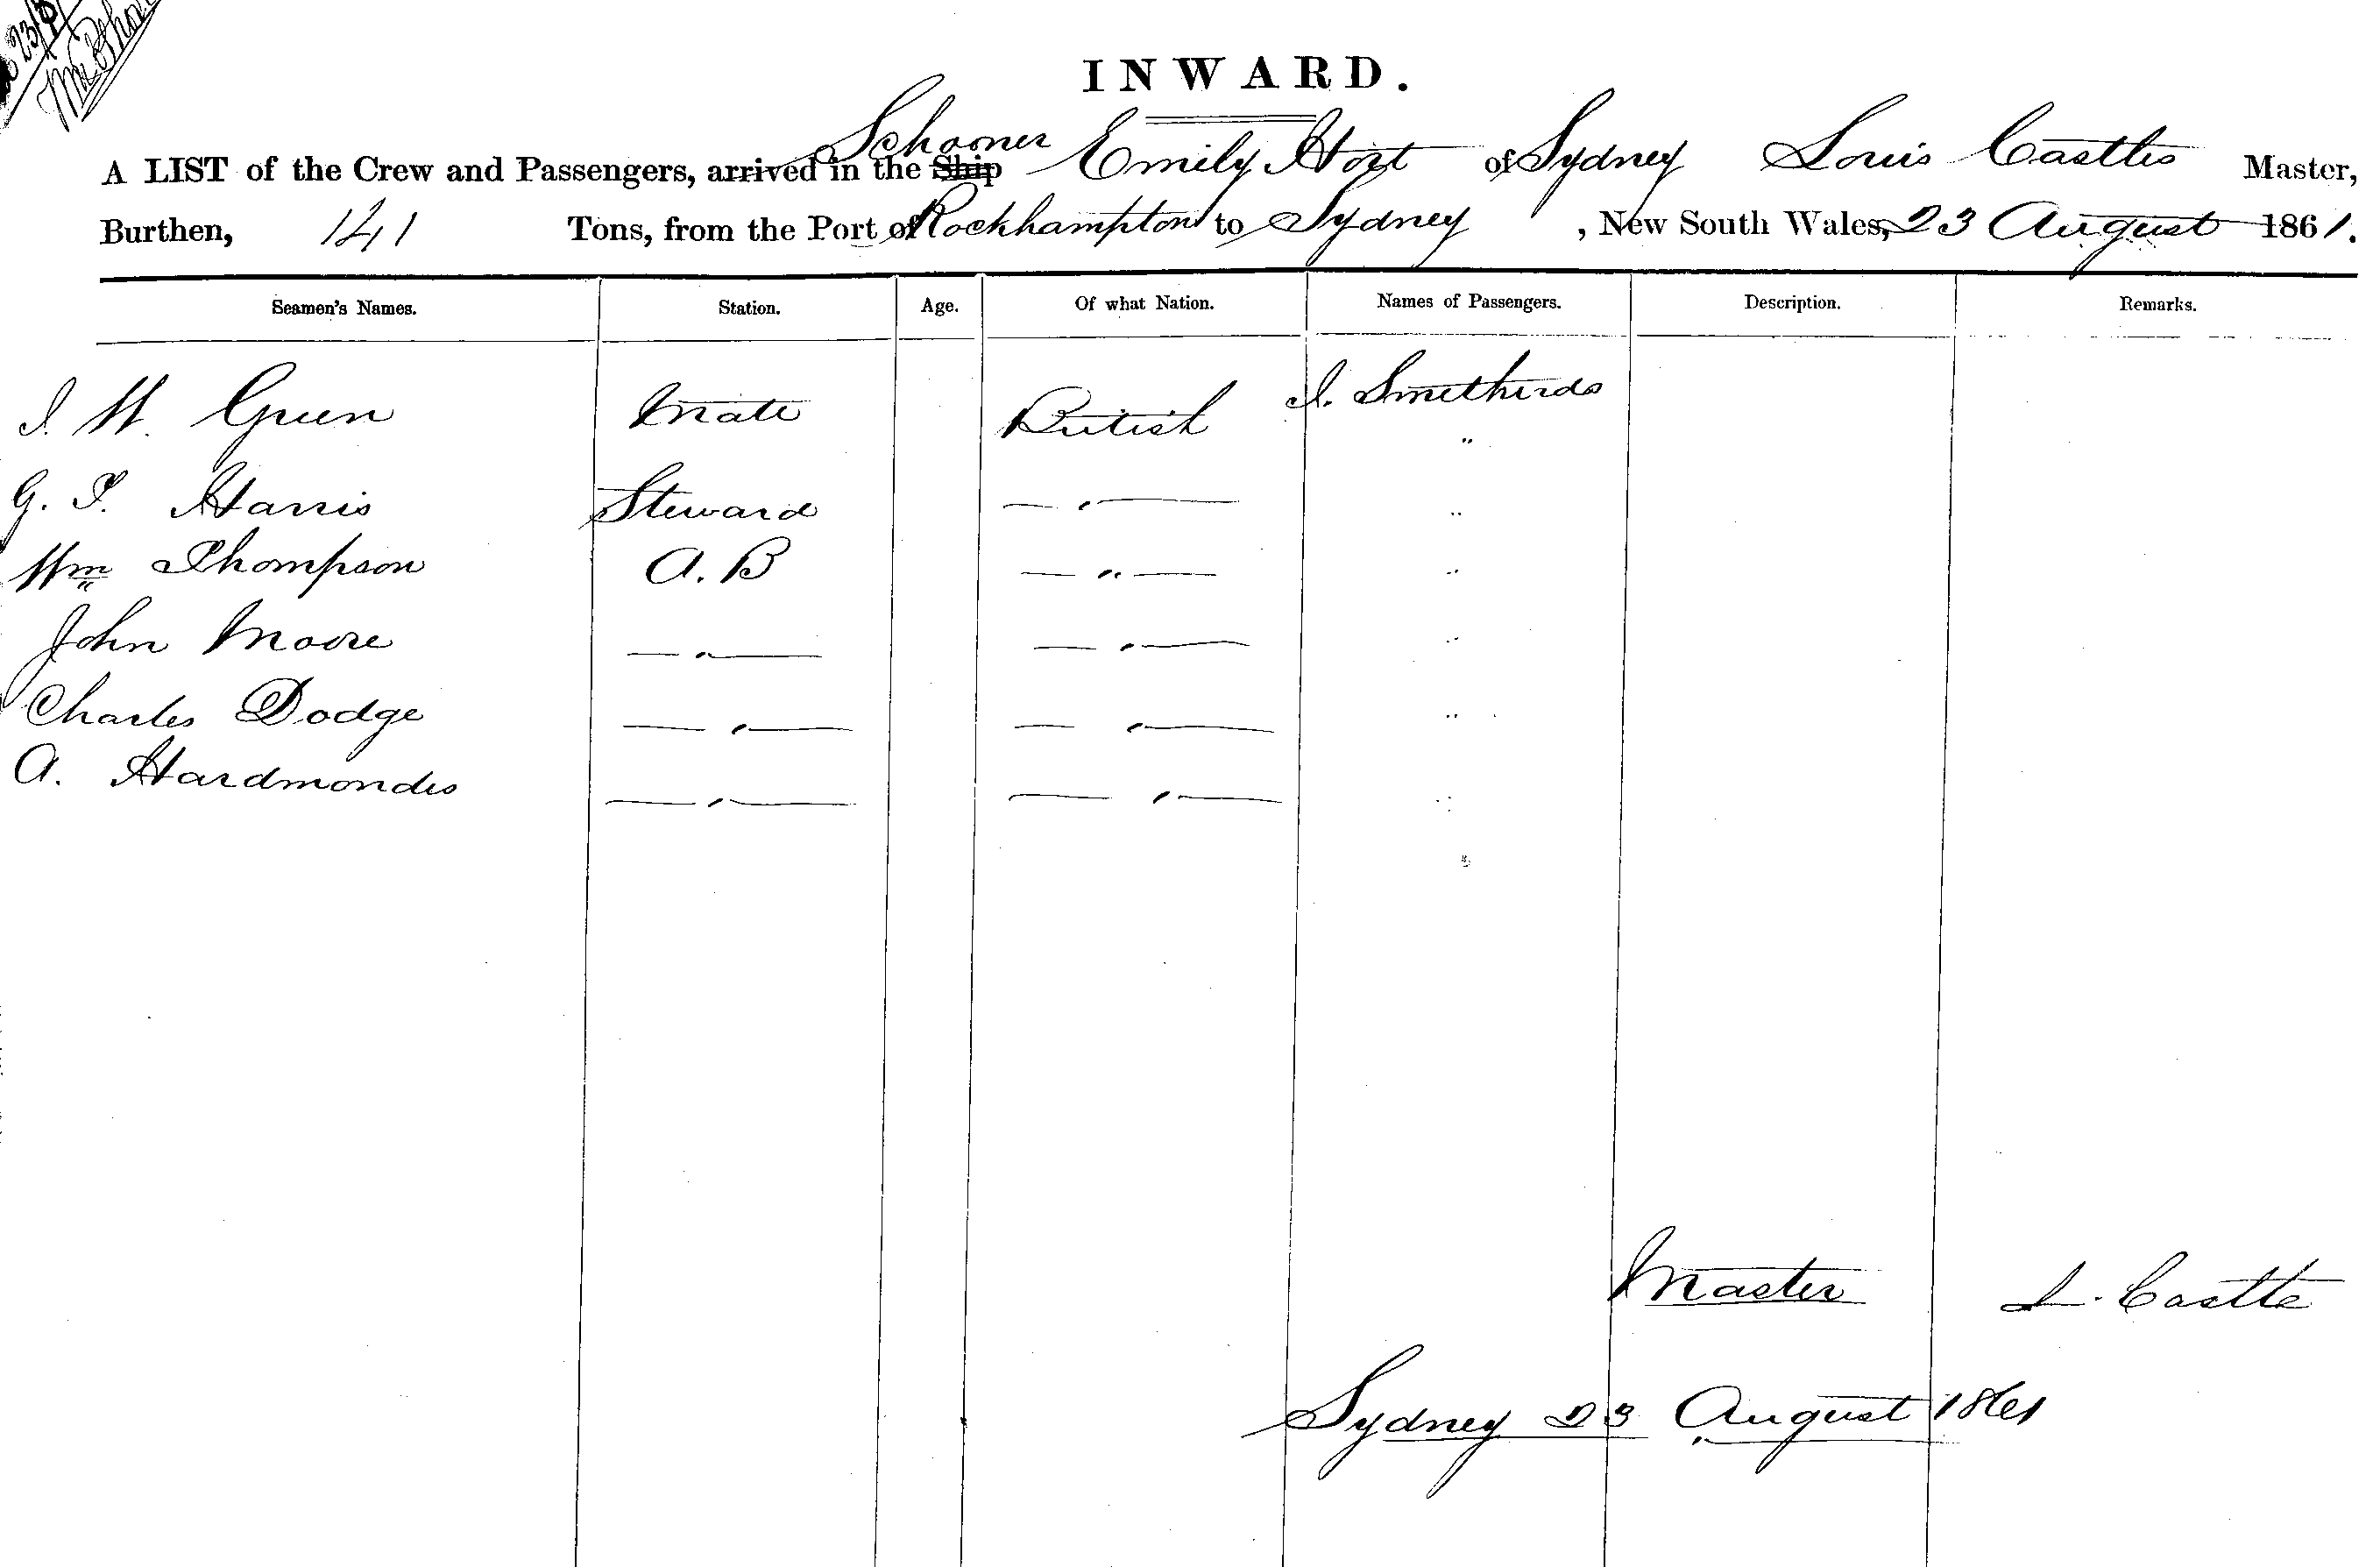 23/8
INWARD.
A LIST of the Crew and Passengers, arrived in the Ship Schooner Emily Hort of Sydney Louis Castles Master,
Burthen, 141 Tons, from the Port of Rockhampton to Sydney , New South Wales, 23 August 1861.
Seamen's Names. Station. Age. Of what Nation. Names of Passengers. Description. Remarks.
J. W. Green Mate British J. Smitherds
"
G. T. Harris Steward — " — "
Wm Thompson A. B — " — "
John Moore — " — — " — "
Charles Dodge — " — — " — "
A. Hardmondes — " — — " — "
Master L. Castle
Sydney 23 August 1861